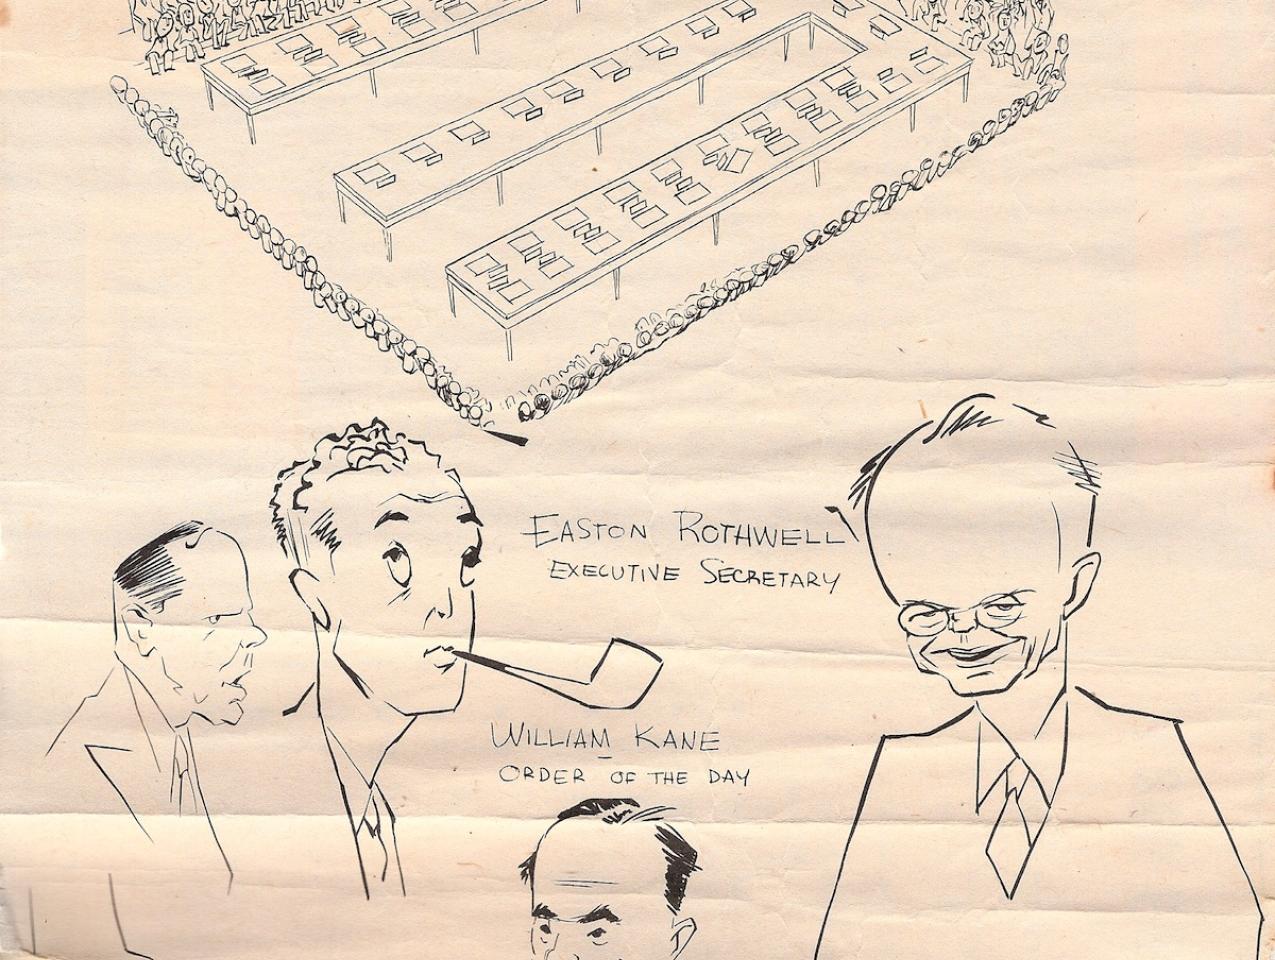 EASTON ROTHWELL
EXECUTIVE SECRETARY
WILLIAM KANE
ORDER OF THE DAY